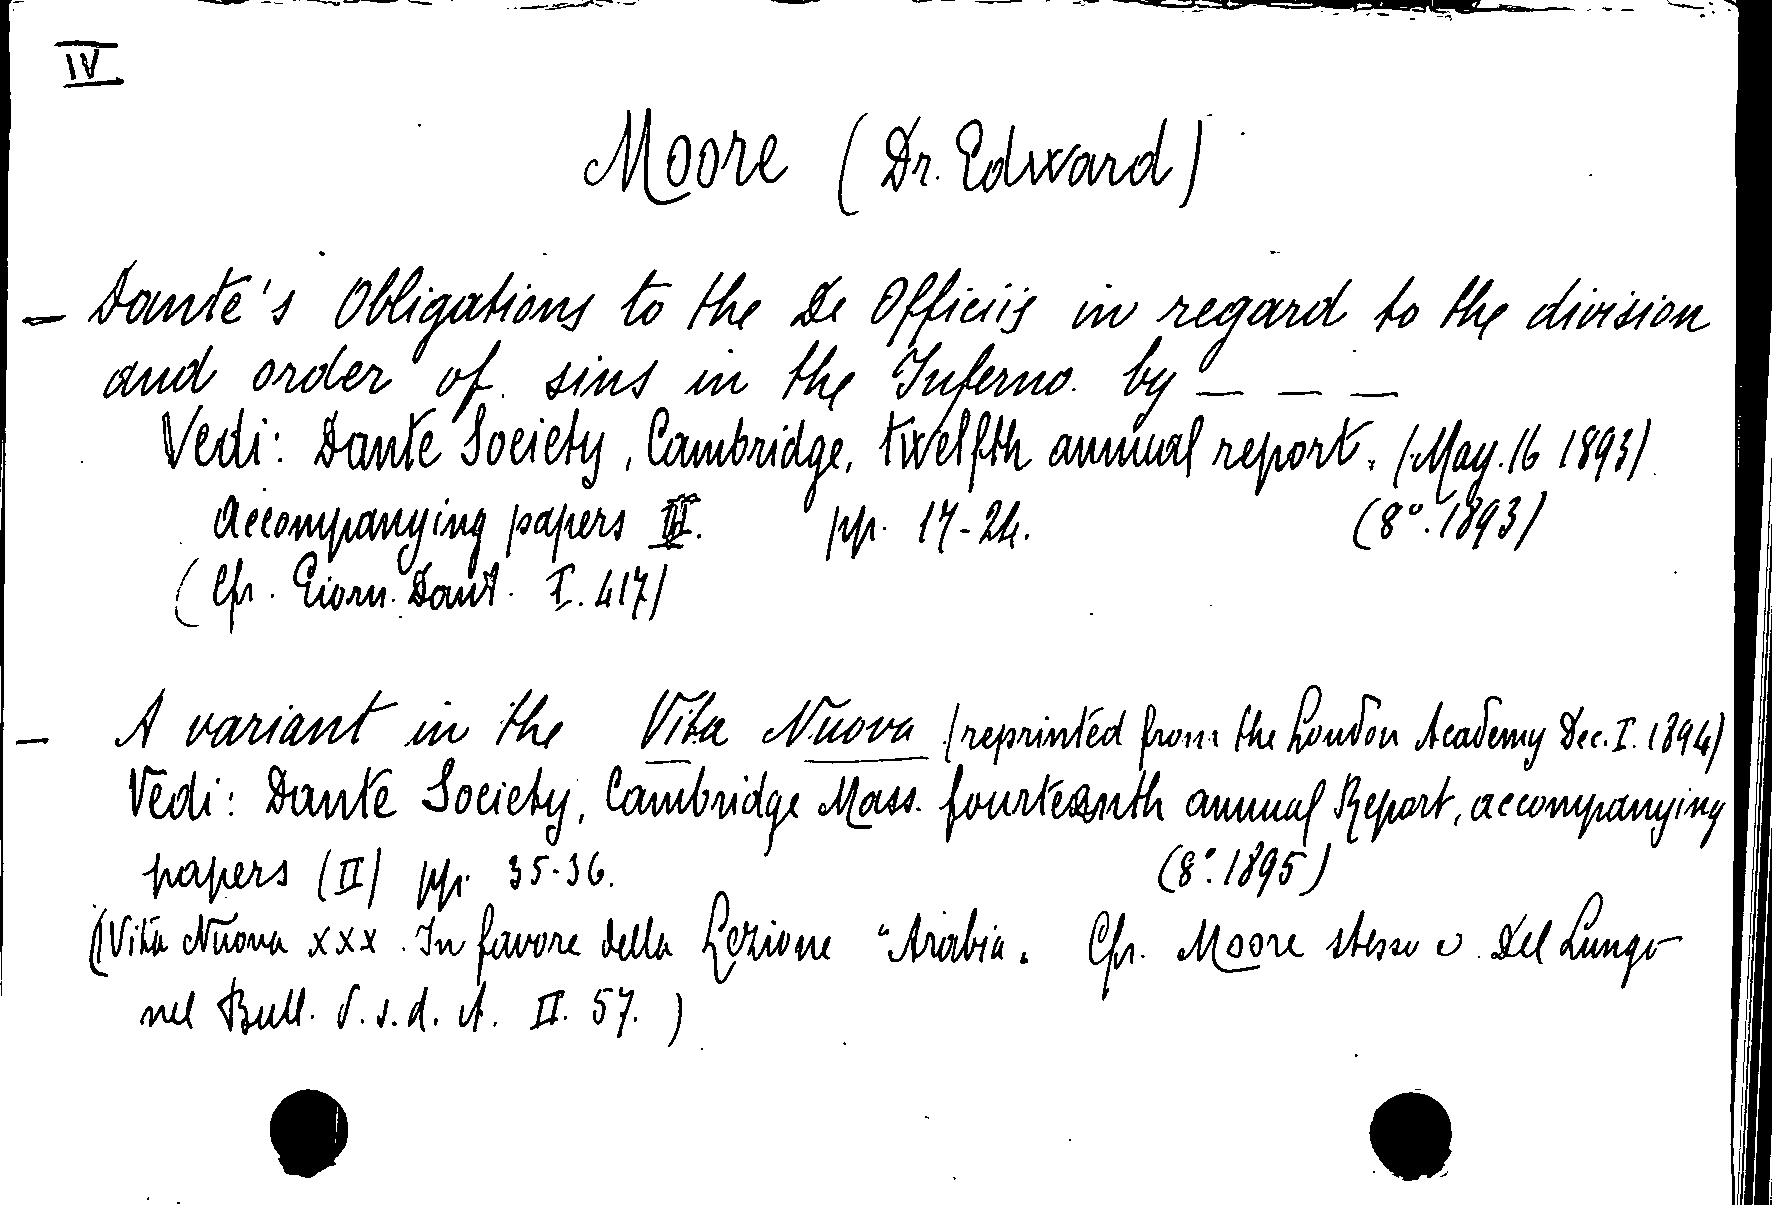 IV
Moore (Dr. Edward)
— Dante's Obligations to the De Officiis in regard to the division
and order of sins in the Inferno. by — — —
Vedi: Dante Society, Cambridge, twelfth annual report. (May. 16 1893)
Accompanying papers II. pp. 17-24. (8º. 1893)
(Cfr. Giorn. Dant. I. 417)
— A variant in the Vita Nuova (reprinted from the London Academy Dec. I. 1894)
Vedi: Dante Society, Cambridge Mass. fourteenth annual Report, accompanying
papers (II) pp. 35-36. (8º. 1895)
(Vita Nuova XXX. In favore della Lezione "Arabia. Cfr. Moore stesso e Del Lungo
nel Bull. S. s. d. it. II. 57.)